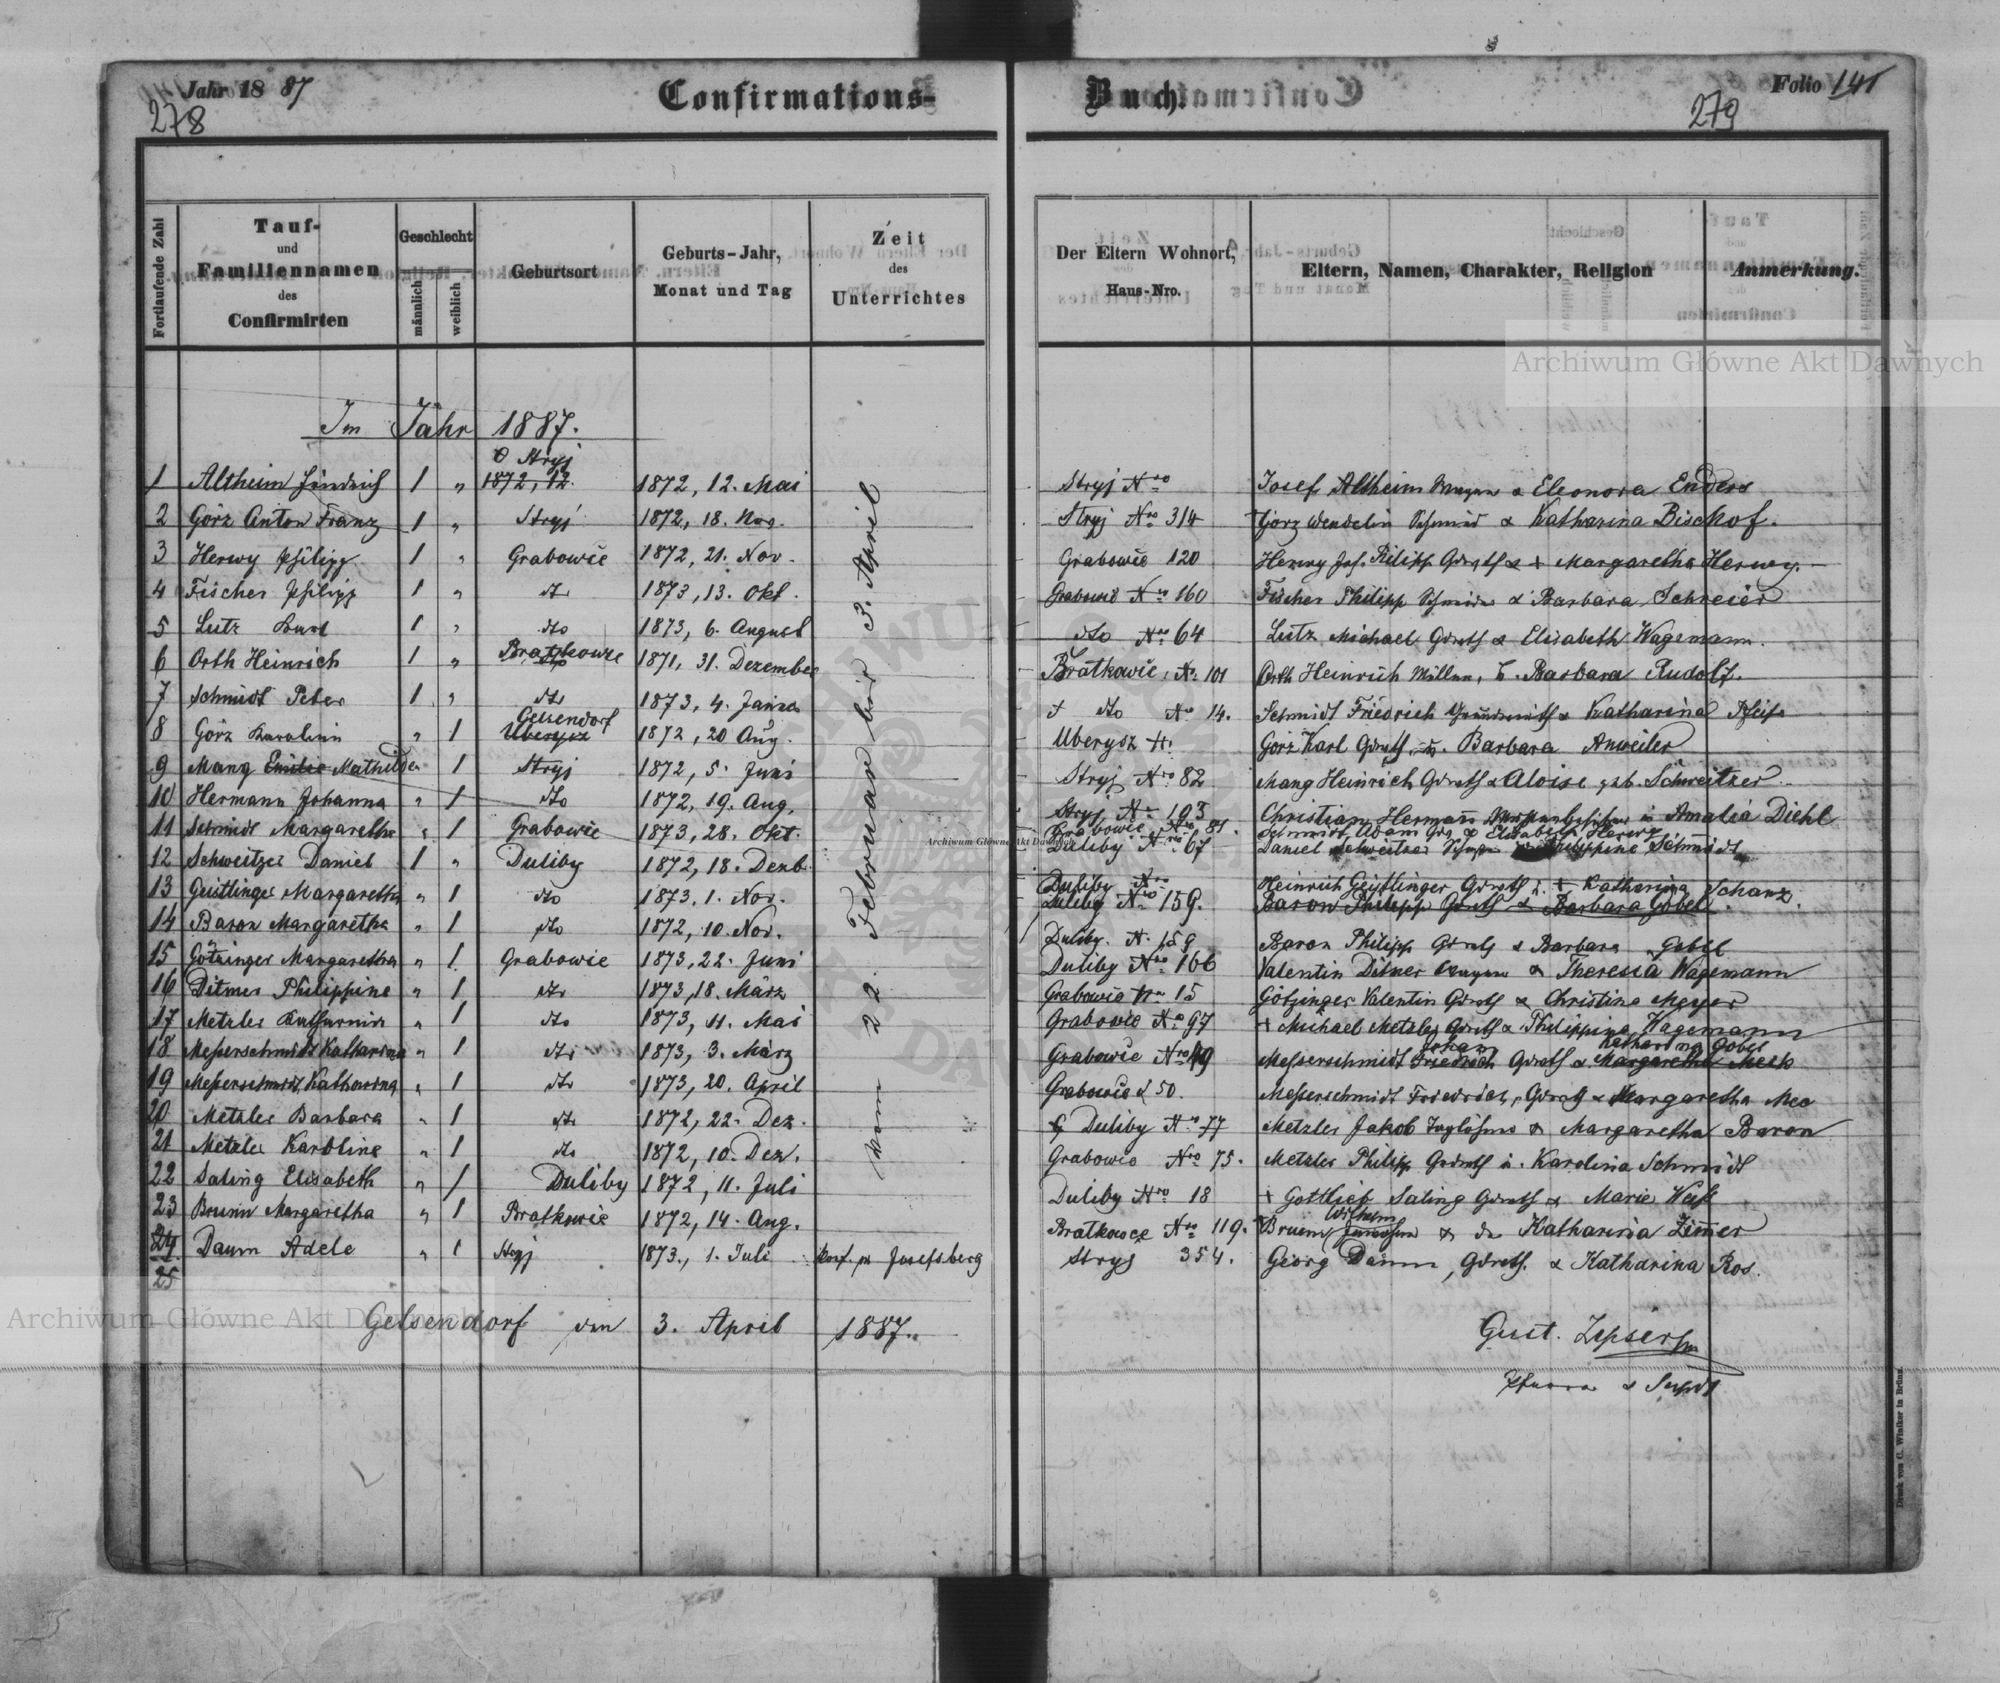 Jahr 1887 Confirmations-Buch. Folio 141
278 279
Fortlaufende Zahl
Tauf- und Familiennamen des Confirmirten
Geschlecht
männlich
weiblich
Geburtsort
Geburts-Jahr, Monat und Tag
Zeit des Unterrichtes
Der Eltern Wohnort, Haus-Nro.
Eltern, Namen, Charakter, Religion
Anmerkung.
Im Jahr 1887.
1 Altheim 1 " Stryj 1872, 12. 1872, 12. Mai Stryj Nro Josef Altheim & Eleonora Enders
2 Görz Anton Franz 1 " Stryj 1872, 18. Nov. Stryj Nro 314 Görz Wendelin Schmied & Katharina Bischof.
3 Herwy Philipp 1 " Grabowie 1872, 21. Nov. Grabowie 120 Herwy Jos. Philipp Gdrth & + Margaretha Herwy.
4 Fischer Philipp 1 " dto 1873, 13. Okt. Grabowie Nro 160 Fischer Philipp & Barbara Schreier
5 Lutz Karl 1 " dto 1873, 6. August dto Nro 64 Lutz Michael Gdrth & Elisabeth Wagemann
6 Orth Heinrich 1 " Bratkowce 1871, 31. Dezember Bratkowie No 101 Orth Heinrich Müller, & Barbara Rudolf.
7 Schmidt Peter 1 " dto 1873, 4. dto No 14. Schmidt Friedrich & Katharina
8 Görz Karolina " 1 Gelsendorf Uberysz 1872, 20 Aug. Uberysz N. Görz Karl Gdrth u. Barbara Anweiler
9 Mang Emilie Mathilde " 1 Stryj 1872, 5. Juni Stryj Nro 82 Mang Heinrich Gdrth & Aloise geb. Schweitzer
10 Hermann Johanna " 1 dto 1872, 19. Aug. Stryj No 193 Christian Hermann & Amalia Diehl
11 Schmidt Margaretha " 1 Grabowie 1873, 28. Okt. Grabowie Nro 81. Schmidt Adam & Elisabeth Herwy
12 Schweitzer Daniel 1 " Duliby 1872, 18. Dezb. Duliby Nro 67 Daniel Schweitzer Philippine Schmidt
13 Geistlinger Margaretha " 1 dto 1873, 1. Nov. Duliby Nro Heinrich Geistlinger Gdrth u. + Katharina Schanz.
Duliby No 159. Baron Philipp Gdrth & Barbara Gobel
14 Baron Margaretha " 1 dto 1872, 10. Nov. Duliby. N. 159 Baron Philipp Gdrth & Barbara Gobel
15 Götzinger Margaretha " 1 Grabowie 1873, 22. Juni Duliby Nro 166 Valentin Ditmer & Theresia Wagemann
16 Ditmer Philippine " 1 dto 1873, 18. März Grabowie No 15 Götzinger Valentin Gdrth & Christina Meyer
17 Metzler Katharina " 1 dto 1873, 11. Mai Grabowie No 97 + Michael Metzler Gdrth & Philippine Wagemann
18 Messerschmidt Katharina " 1 dto 1873, 3. März Grabowie Nro 49 Messerschmidt Friedrich Johann Gdrth & Margaretha Meck Katharina Gobel
19 Messerschmidt Katharina " 1 dto 1873, 20. April Grabowie 50. Messerschmidt Friedrich, Gdrth & Margaretha Mec
20 Metzler Barbara " 1 dto 1872, 22. Dez. Duliby No 77 Metzler Jakob & Margaretha Baron
21 Metzler Karoline " 1 dto 1872, 10. Dez. Grabowie Nro 75. Metzler Philipp Gdrth u. Karolina Schmidt
22 Saling Elisabeth " 1 Duliby 1872, 11. Juli Duliby Nro 18 + Gottlieb Saling Gdrth & Marie Weiß
23 Brunn Margaretha " 1 Bratkowie 1872, 14. Aug. Bratkowce Nro 119. Wilhelm & Katharina Zimmer
24 Daum Adele " 1 Stryj 1873., 1. Juli Konf. in Josefsberg Stryj 354. Georg Daum, Gdrth. & Katharina Ros.
25
vom 22. Februar bis 3. April
Gelsendorf den 3. April 1887.
Gust. Zipser
Druck von C. Winiker in Brünn.
Archiwum Główne Akt Dawnych
Archiwum Główne Akt Dawnych
Archiwum Główne Akt Dawnych